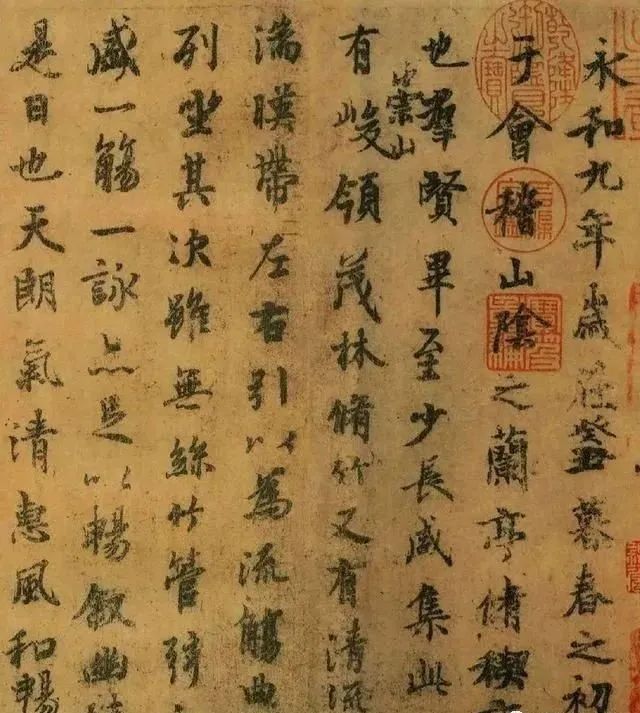 永和九年歲在癸丑暮春之初
于會稽山陰之蘭亭脩稧
也羣賢畢至少長咸集此
有崇山峻領茂林脩竹又有清流
湍暎帶左右引以為流觴曲
列坐其次雖無絲竹管弦
盛一觴一詠亦足以暢敘幽
是日也天朗氣清惠風和暢